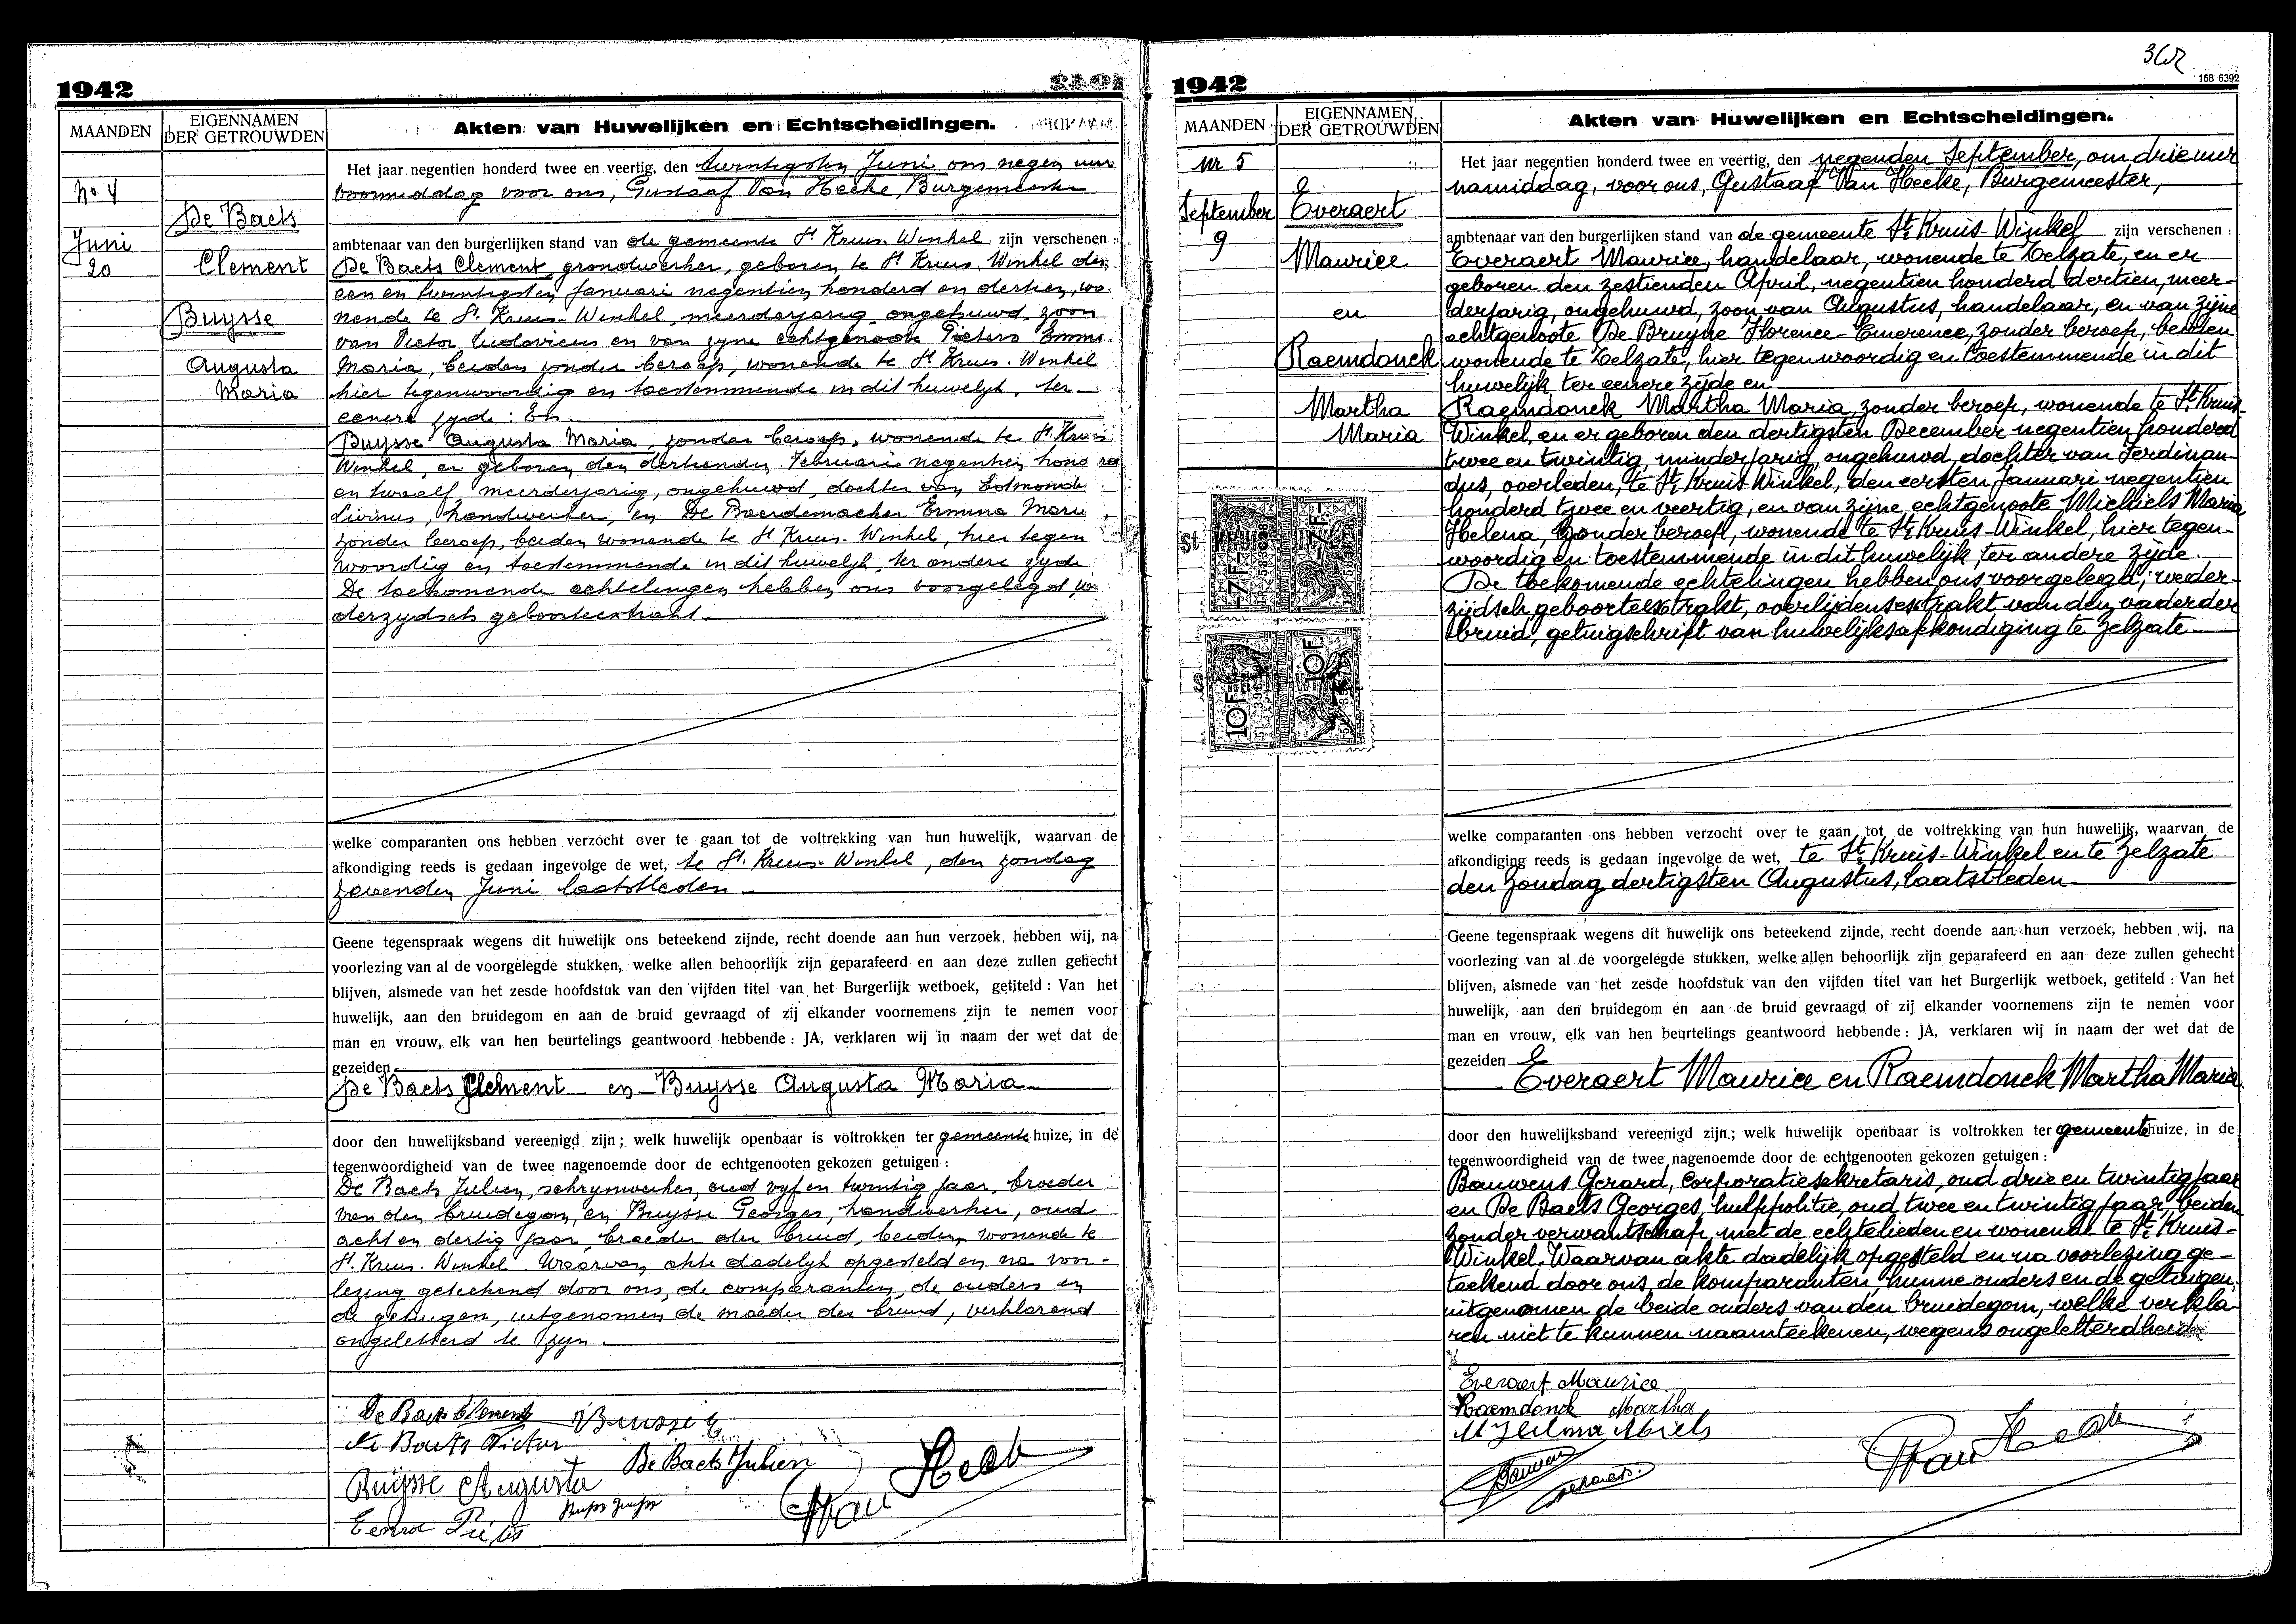 1942
MAANDEN
EIGENNAMEN
DER GETROUWDEN
Akten van Huwelijken en Echtscheidingen.
No 4
Juni
20
De Baets
Clement
Buysse
Augusta
Maria
Het jaar negentien honderd twee en veertig, den twintigsten Juni om negen uur
voormiddag voor ons, Gustaaf Van Hecke, Burgemeester
ambtenaar van den burgerlijken stand van de gemeente St Kruis-Winkel zijn verschenen :
De Baets Clement, grondwerker, geboren te St Kruis-Winkel den
een en twintigsten Januari negentien honderd en dertien, wo-
nende te St Kruis-Winkel, meerderjarig, ongehuwd, zoon
van Victor Ludovicus en van zyne echtgenoote Pieters Emma
Maria, beiden zonder beroep, wonende te St Kruis-Winkel
hier tegenwoordig en toestemmende in dit huwelyk, ter
eenere zyde : En
Buysse Augusta Maria, zonder beroep, wonende te St Kruis
Winkel, er geboren den dertienden Februari negentien hond rd
en twaalf, meerderjarig, ongehuwd, dochter van Edmondus
Livinus, handwerker, en De Baerdemaeker Ermina Maria,
zonder beroep, beiden wonende te St Kruis-Winkel, hier tegen
woordig en toestemmende in dit huwelyk, ter andere zyde
De toekomende echtelingen hebben ons voorgelegd, we
derzydsch geboorteextrakt.
welke comparanten ons hebben verzocht over te gaan tot de voltrekking van hun huwelijk, waarvan de
afkondiging reeds is gedaan ingevolge de wet, te St Kruis-Winkel, den zondag
zevenden Juni laatstleden
Geene tegenspraak wegens dit huwelijk ons beteekend zijnde, recht doende aan hun verzoek, hebben wij, na
voorlezing van al de voorgelegde stukken, welke allen behoorlijk zijn geparafeerd en aan deze zullen gehecht
blijven, alsmede van het zesde hoofdstuk van den vijfden titel van het Burgerlijk wetboek, getiteld : Van het
huwelijk, aan den bruidegom en aan de bruid gevraagd of zij elkander voornemens zijn te nemen voor
man en vrouw, elk van hen beurtelings geantwoord hebbende : JA, verklaren wij in naam der wet dat de
gezeiden
De Baets Clement en Buysse Augusta Maria
door den huwelijksband vereenigd zijn ; welk huwelijk openbaar is voltrokken ter gemeente huize, in de
tegenwoordigheid van de twee nagenoemde door de echtgenooten gekozen getuigen :
De Baets Julien, schrynwerker, oud vyf en twintig jaar, broeder
van den bruidegom, en Buysse Georges, handwerker, oud
acht en dertig jaar, broeder der bruid, beiden wonende te
St Kruis-Winkel. Waarvan akte dadelyk opgesteld en na voor-
lezing geteekend door ons, de comparanten, de ouders en
de getuigen, uitgenomen de moeder der bruid, verklarend
ongeletterd te zyn.
De Baets Clement Buysse E
De Baets Victor
De Baets Julien
Buysse Augusta
Van Hecke
1942
168 6392
MAANDEN
EIGENNAMEN
DER GETROUWDEN
Akten van Huwelijken en Echtscheidingen.
Nr 5
September
9
Everaert
Maurice
en
Raemdonck
Martha
Maria
-7F-
-7F-
10F
10F
Het jaar negentien honderd twee en veertig, den negenden September, om drie uur
namiddag, voor ons, Gustaaf Van Hecke, Burgemeester,
ambtenaar van den burgerlijken stand van de gemeente St Kruis-Winkel zijn verschenen :
Everaert Maurice, handelaar, wonende te Zelzate, en er
geboren den zestienden April, negentien honderd dertien, meer-
derjarig, ongehuwd, zoon van Augustus, handelaar, en van zijne
echtgenoote De Bruyne Florence-Emerence, zonder beroep, beiden
wonende te Zelzate, hier tegenwoordig en toestemmende in dit
huwelijk ter eenere zijde en
Raemdonck Martha Maria, zonder beroep, wonende te St Kruis-
Winkel, en er geboren den dertigsten December negentien honderd
twee en twintig, minderjarig, ongehuwd, dochter van Ferdinan-
dus, overleden, te St Kruis Winkel, den eersten Januari negentien
honderd twee en veertig, en van zijne echtgenoote Michiels Maria
Helena, zonder beroep, wonende te St Kruis-Winkel, hier tegen-
woordig en toestemmende in dit huwelijk, ter andere zijde.
De toekomende echtelingen hebben ons voorgelegd, weder-
zijdsch geboorteextrakt, overlijdensextrakt van den vader der
bruid, getuigschrift van huwelijksafkondiging te Zelzate
welke comparanten ons hebben verzocht over te gaan tot de voltrekking van hun huwelijk, waarvan de
afkondiging reeds is gedaan ingevolge de wet, te St Kruis-Winkel en te Zelzate
den zondag dertigsten Augustus, laatstleden
Geene tegenspraak wegens dit huwelijk ons beteekend zijnde, recht doende aan hun verzoek, hebben wij, na
voorlezing van al de voorgelegde stukken, welke allen behoorlijk zijn geparafeerd en aan deze zullen gehecht
blijven, alsmede van het zesde hoofdstuk van den vijfden titel van het Burgerlijk wetboek, getiteld : Van het
huwelijk, aan den bruidegom en aan de bruid gevraagd of zij elkander voornemens zijn te nemen voor
man en vrouw, elk van hen beurtelings geantwoord hebbende : JA, verklaren wij in naam der wet dat de
gezeiden
Everaert Maurice en Raemdonck Martha Maria
door den huwelijksband vereenigd zijn ; welk huwelijk openbaar is voltrokken ter gemeente huize, in de
tegenwoordigheid van de twee nagenoemde door de echtgenooten gekozen getuigen :
Bauwens Gerard, corporatiesekretaris, oud drie en twintig jaar
en De Baets Georges, hulppolitie, oud twee en twintig jaar, beiden
zonder verwantschap met de echtelieden en wonende te St Kruis-
Winkel. Waarvan akte dadelijk opgesteld en na voorlezing ge-
teekend door ons, de komparanten, hunne ouders en de getuigen,
uitgenomen de beide ouders van den bruidegom, welke verkla-
ren niet te kunnen naamteekenen, wegens ongeletterdheid.
Everaert Maurice
Raemdonck Martha
Van Hecke